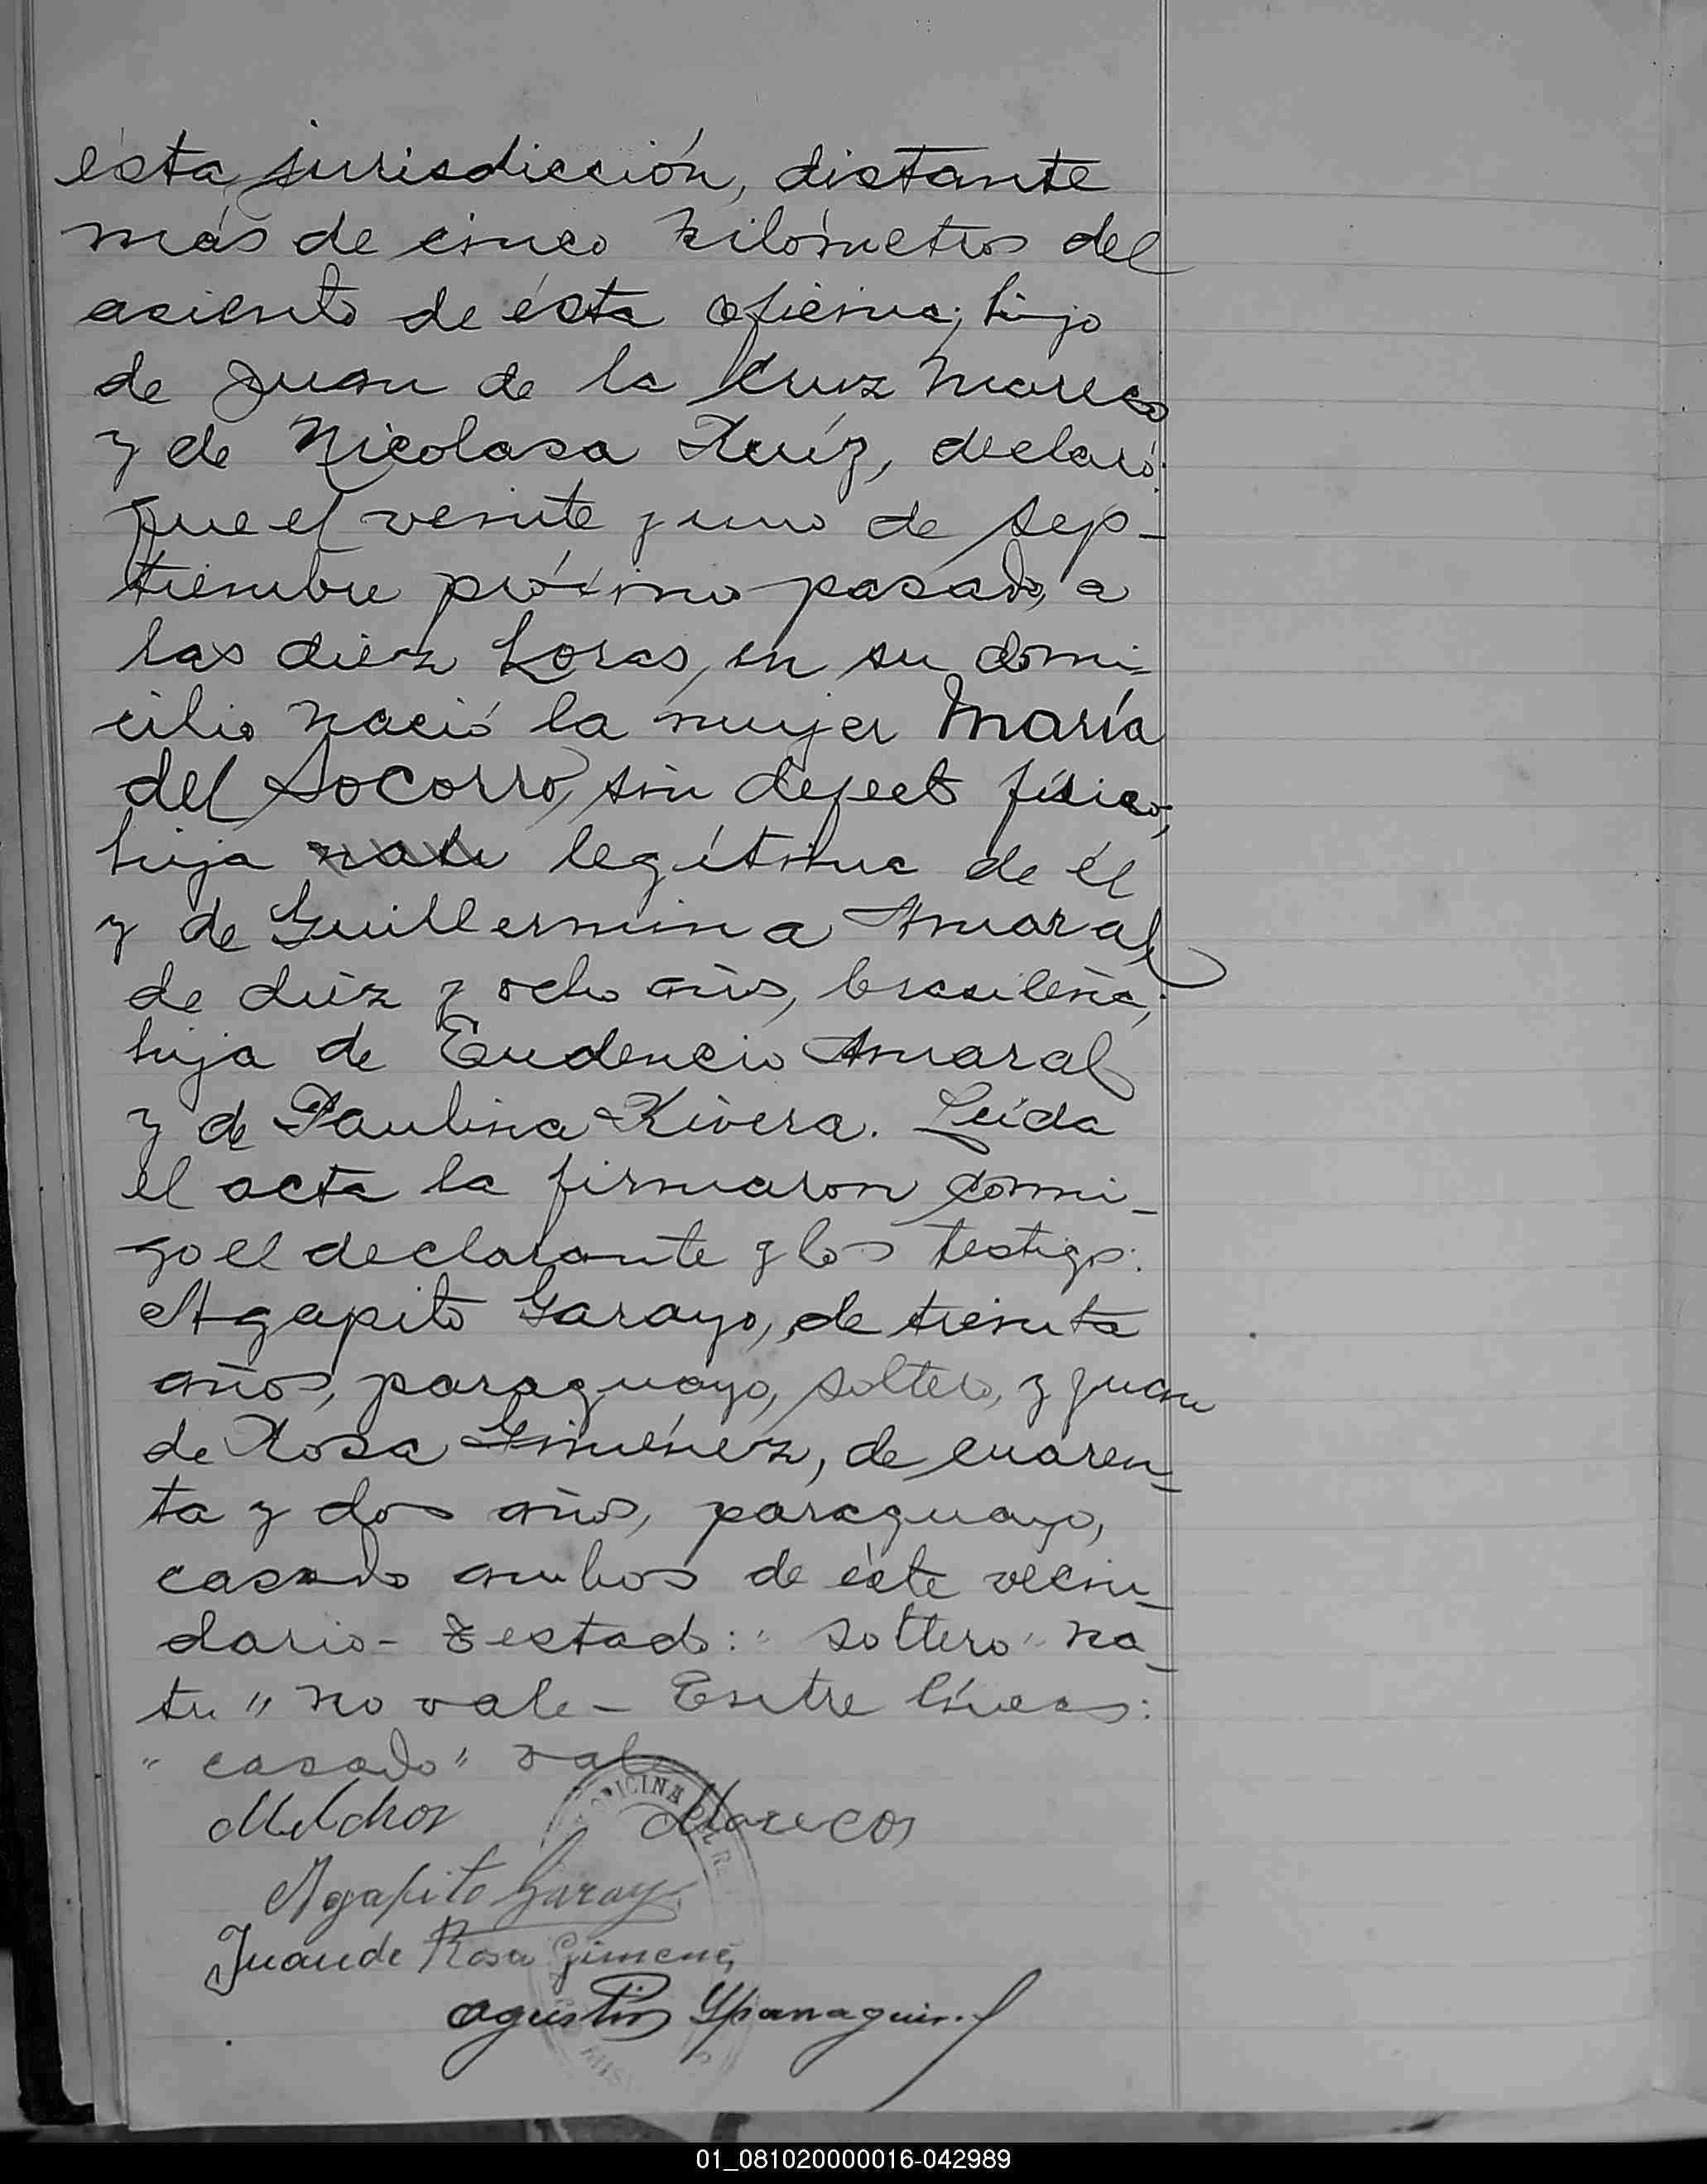 ésta jurisdicción, distante
más de cinco kilómetros del
asiento de ésta oficina; hijo
de Juan de la Cruz Mareco
y de Nicolasa Ruíz, declaró:
que el veinte y uno de sep-
tiembre próximo pasado, a
las diez horas, en su domi-
cilio nació la mujer María
del Socorro, sin defecto físico,
hija natu legítima de él
y de Guillermina Amaral
de diez y ocho años, brasileña;
hija de Eudencio Amaral
y de Paulina Rivera. Leída
el acta la firmaron conmi-
go el declarante y los testigos:
Agapito Garayo, de treinta
años, paraguayo, soltero, y Juan
de Rosa Giménez, de cuaren-
ta y dos años, paraguayo,
casado ambos de éste vecin-
dario - Testado: "soltero" na-
tu" no vale - Entre líneas:
"casado" vale
Melchor Marecos
Agapito Garay
Juan de Rosa Gimenez
Agustin
OFICINA DEL R
MIS
01_081020000016-042989